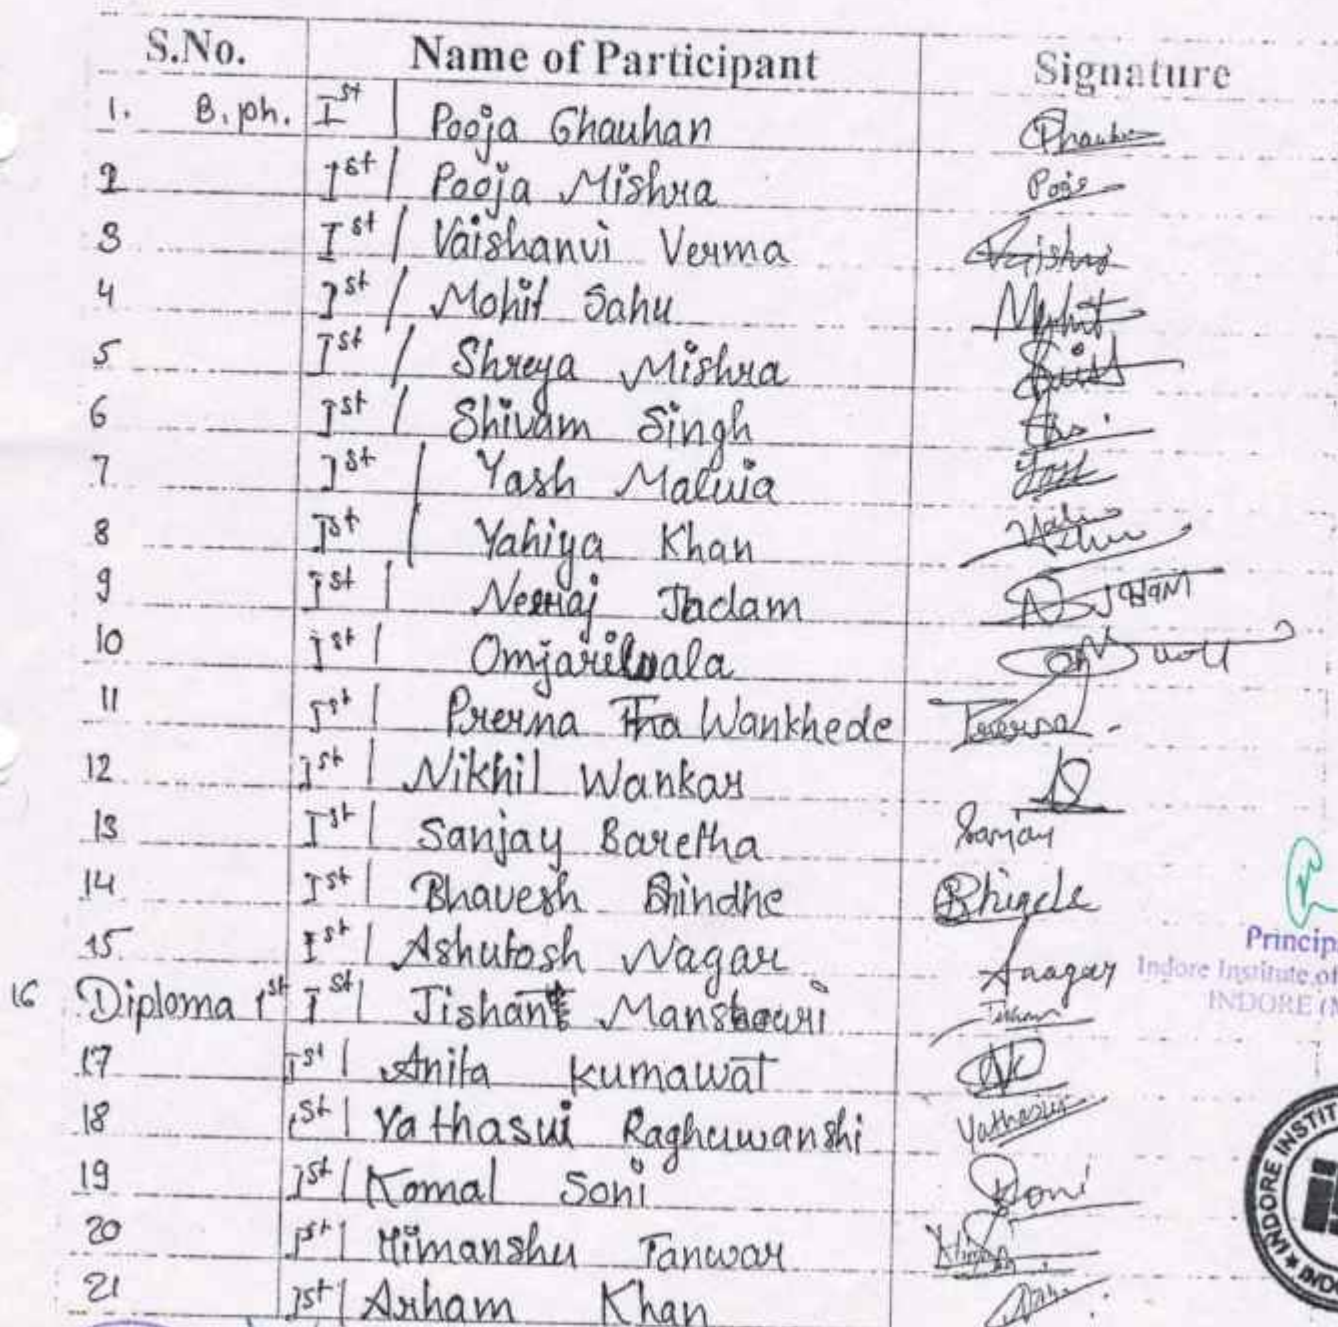 S.No. Name of Participant Signature
1. B. ph. Ist Pooja Chauhan Chauhan
2 Ist Pooja Mishra Pooja
3 Ist Vaishanvi Verma
4 Ist Mohit Sahu Mohit
5 Ist Shreya Mishra
6 Ist Shivam Singh
7 Ist Yash Malvia Yash
8 Ist Yahiya Khan
9 Ist Neeraj Jadam
10 Ist Omjarilwala
11 Ist Prerna Wankhede Prerna
12 Ist Nikhil Wankar
13 Ist Sanjay Baretha Sanjay
14 Ist Bhavesh Bhindhe
15 Ist Ashutosh Nagar Anagar
16 Diploma 1st Ist Jishant Manshouri
17 Ist Anita Kumawat
18 Ist Yathasvi Raghuwanshi Yathasvi
19 Ist Komal Soni Soni
20 Ist Himanshu Tanwar
21 Ist Arham Khan
Princip
Indore Institute of
INDORE (
INDORE INSTIT